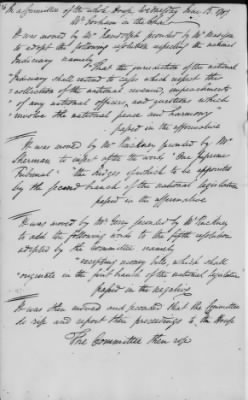 In a Committee of the whole House Wednesday June 13. 1787
Mr Gorham in the Chair
It was moved by Mr Randolph seconded by Mr Madison
to adopt the following resolution respecting the national
Judiciary namely
"That the jurisdiction of the national
Judiciary shall extend to cases which respect the
collection of the national revenue, impeachments
of any national officers, and questions which
involve the national peace and harmony
passed in the affirmative
It was moved by Mr Pinckney seconded by Mr
Sherman to insert after the words "One supreme
Tribunal" "the Judges of which to be appointed
by the second branch of the national legislature
passed in the affirmative
It was moved by Mr Gerry seconded by Mr Pinckney
to add the following words to the fifth resolution
adopted by the Committee namely
"excepting money bills, which shall
originate in the first branch of the national legislature"
passed in the negative
It was then moved and seconded that the Committee
do rise and report their proceedings to the House
The Committee then rose